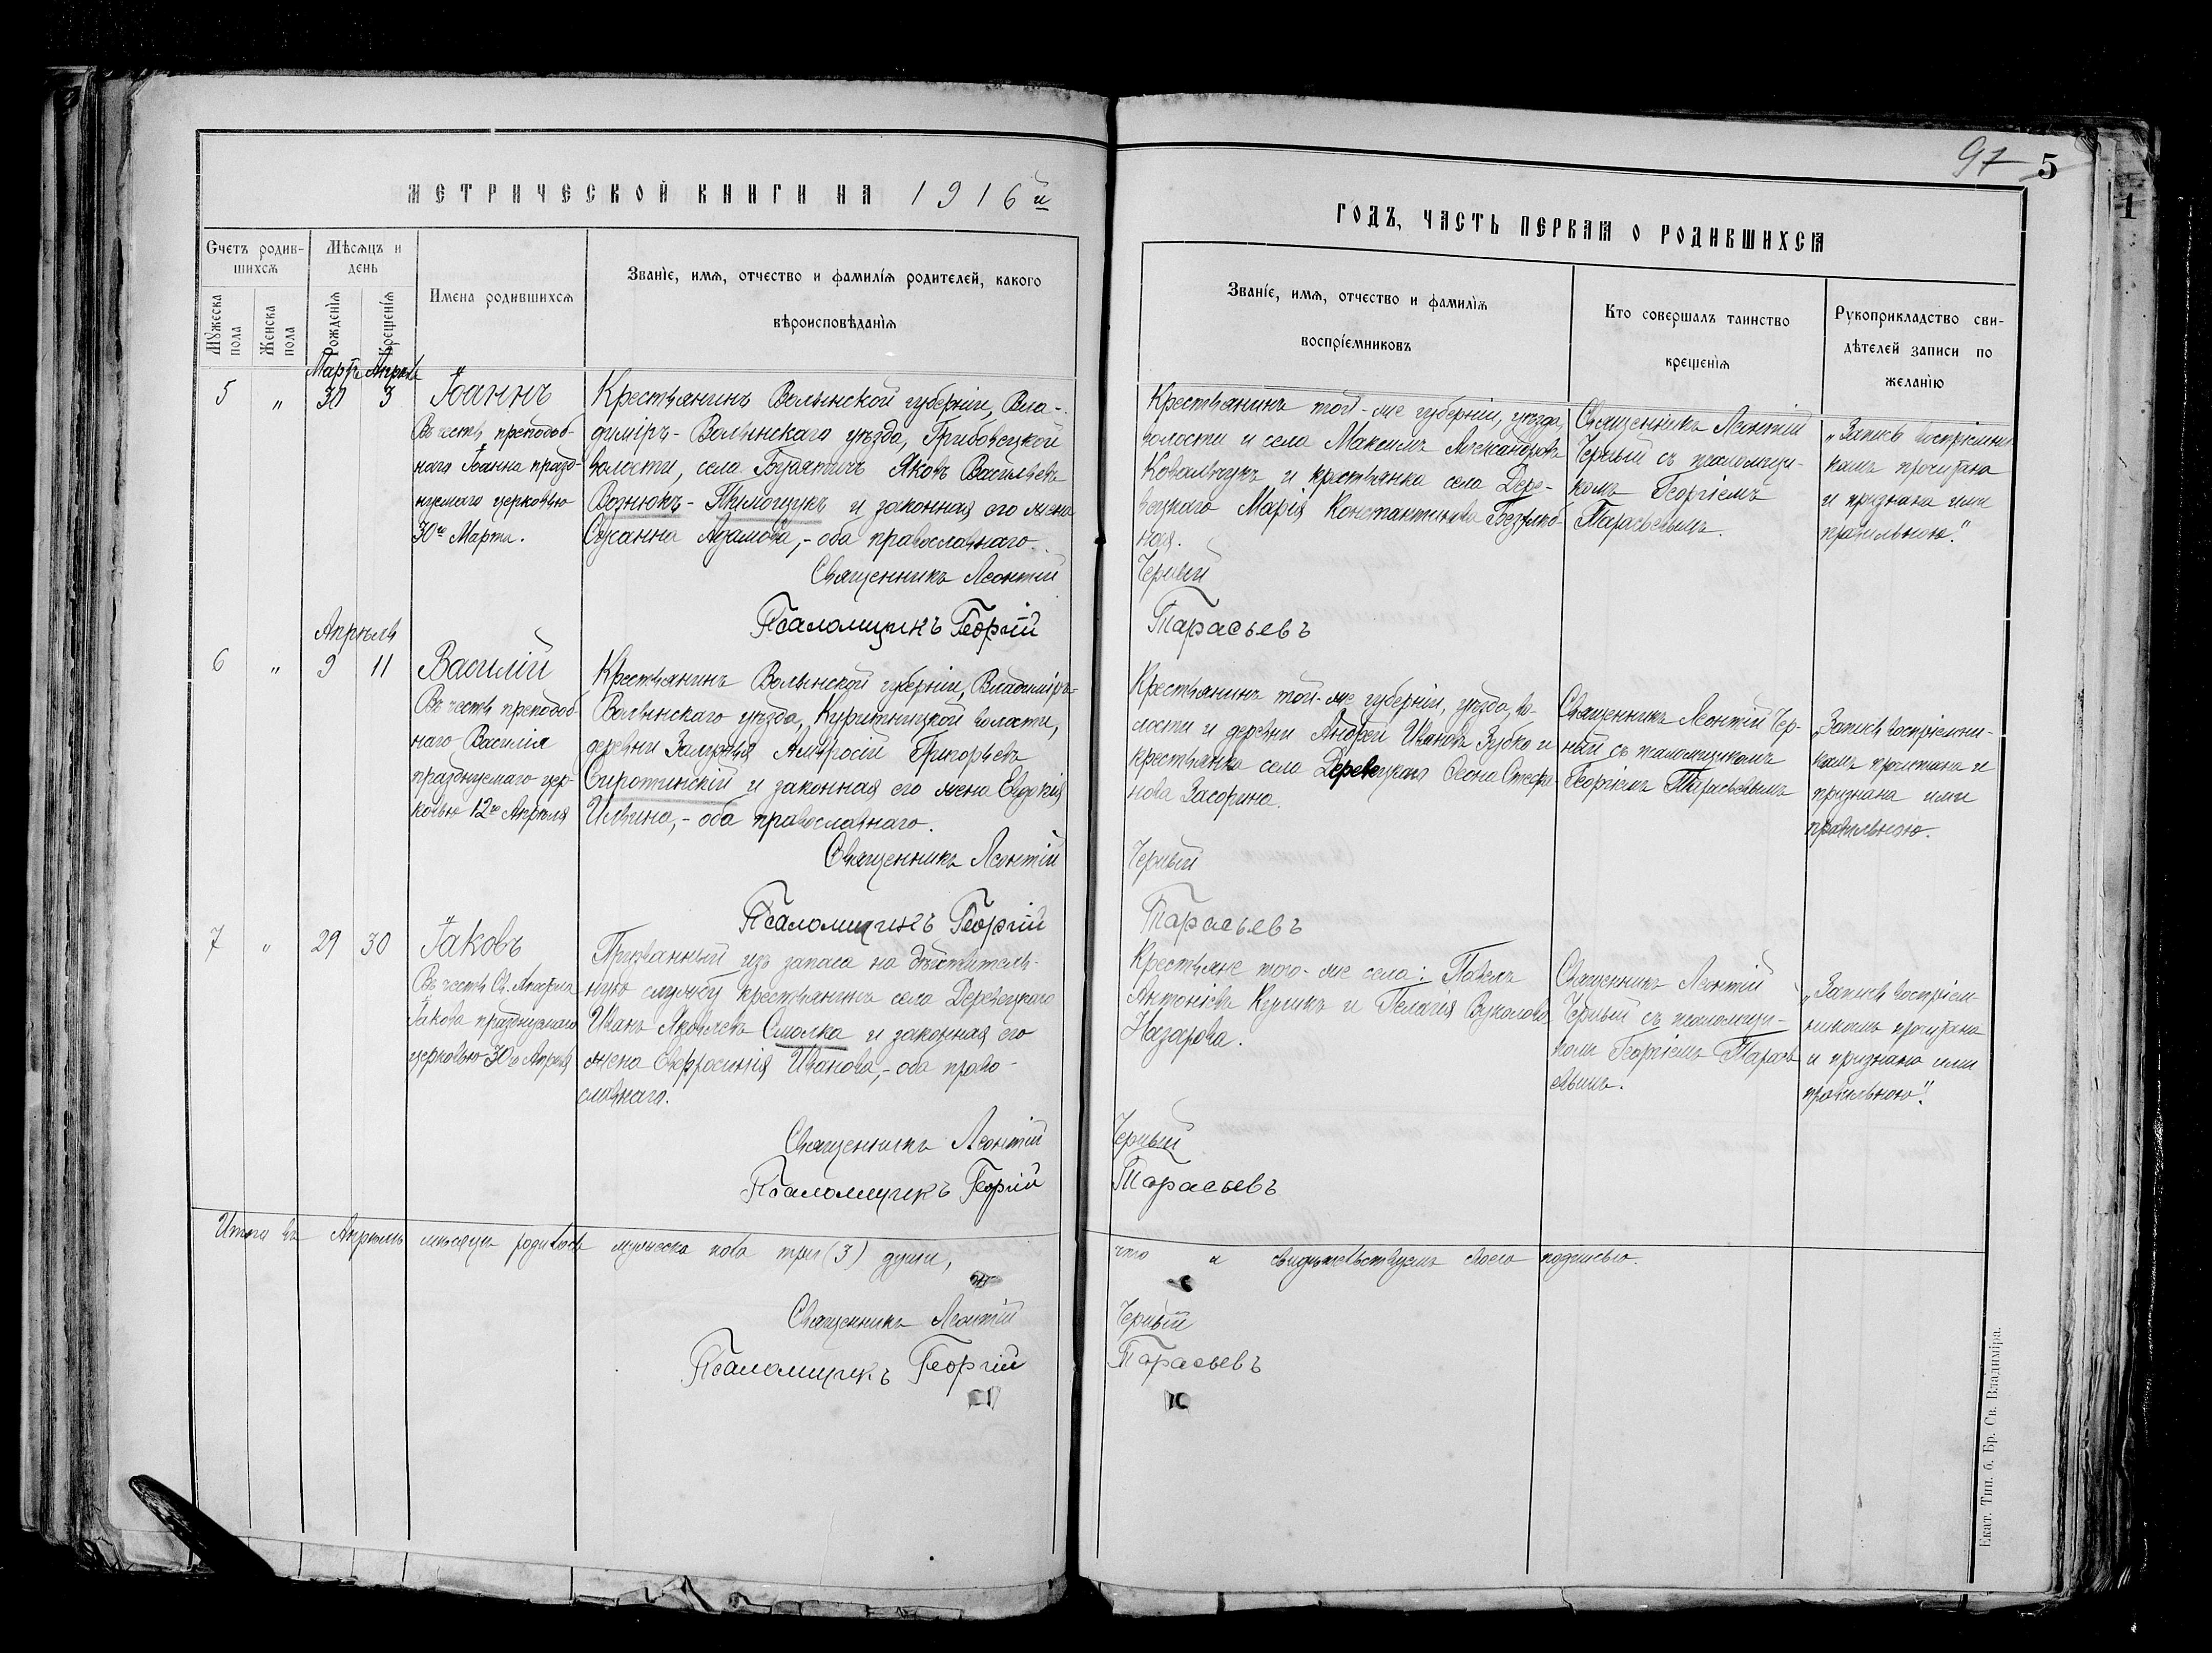 МЕТРИЧЕСКОЙ КНИГИ НА 1916й
Счетъ родив-
шихсѧ
Мѣсѧцъ и
день
Имена родившихсѧ
Званіе, имѧ, отчество и фамиліѧ родителей, какого
вѣроисповѣданіѧ
Мꙋжеска
пола
Женска
пола
Рожденіѧ
Крещеніѧ
Мартъ Апрѣль
5 „ 30 3
Іоаннъ
Въ честь преподоб-
наго Іоанна празд-
нуемаго церковью
30го Марта.
Крестьянинъ Волынской губерніи, Вла-
диміръ-Волынскаго уѣзда, Грибовецкой
волости, села Бужятичъ Яковъ Васильевъ
Вознюкъ - и законная его жена
Сусанна Адамова, - оба православнаго.
Священникъ Леонтій
Псаломщикъ Георгій
Апрѣль
6 „ 9 11
Василій
Въ честь преподоб-
наго Василія
празднуемаго цер-
ковью 12го Апрѣля
Крестьянинъ Волынской губерніи, Владиміръ-
Волынскаго уѣзда, волости,
деревни Амвросій Григорьевъ
Сиротинскій и законная его жена Евдокія
Ильина, - оба православнаго.
Священникъ Леонтій
Псаломщикъ Георгій
7 „ 29 30
Іаковъ
Въ честь Св. Апостола
Іакова празднуемаго
церковью 30го Апрѣля
Призванный изъ запаса на дѣйствитель-
ную службу крестьянинъ села Деревецкаго
Иванъ Яковлевъ Смолка и законная его
жена Евфросинія Иванова, - оба право-
славнаго.
Священникъ Леонтій
Псаломщикъ Георгій
Итого въ Апрѣлѣ мѣсяцѣ родилось мужеска пола три (3) души,
Священникъ Леонтій
Псаломщикъ Георгій
97 5
ГОДЪ, ЧАСТЬ ПЕРВАѦ О РОДИВШИХСѦ
Званіе, имѧ, отчество и фамиліѧ
воспріемниковъ
Кто совершалъ таинство
крещеніѧ
Рукоприкладство сви-
дѣтелей записи по
желанію
Крестьянинъ той-же губерніи, уѣзда,
волости и села Максимъ Александровъ
Ковальчукъ и крестьянка села Дере-
вецкаго Марія Константинова
Черный
Тарасьевъ
Священникъ Леонтій
Черный съ псаломщи-
комъ Георгіемъ
Тарасьевымъ.
„Запись воспріемни-
камъ прочитана
и признана ими
правильною."
Крестьянинъ той-же губерніи, уѣзда, во-
лости и деревни Андрей Ивановъ Зубко и
крестьянка села Деревецкаго Ѳеона Стефа-
нова Засорина.
Черный
Тарасьевъ
Священникъ Леонтій Чер-
ный съ псаломщикомъ
Георгіемъ Тарасьевымъ
„Запись воспріемни-
камъ прочитана и
признана ими
правильною.
Крестьяне того-же села: Павелъ
Антоніевъ и Пелагія Вуколова
Назарова.
Черный
Тарасьевъ
Священникъ Леонтій
Черный съ псаломщи-
комъ Георгіемъ Тарась-
евымъ.
„Запись воспріем-
никамъ прочитана
и признана ими
правильною".
что и свидѣтельствуемъ своею подписью.
Черный
Тарасьевъ
Екат. Тип. б. Бр. Св. Владиміра.
1